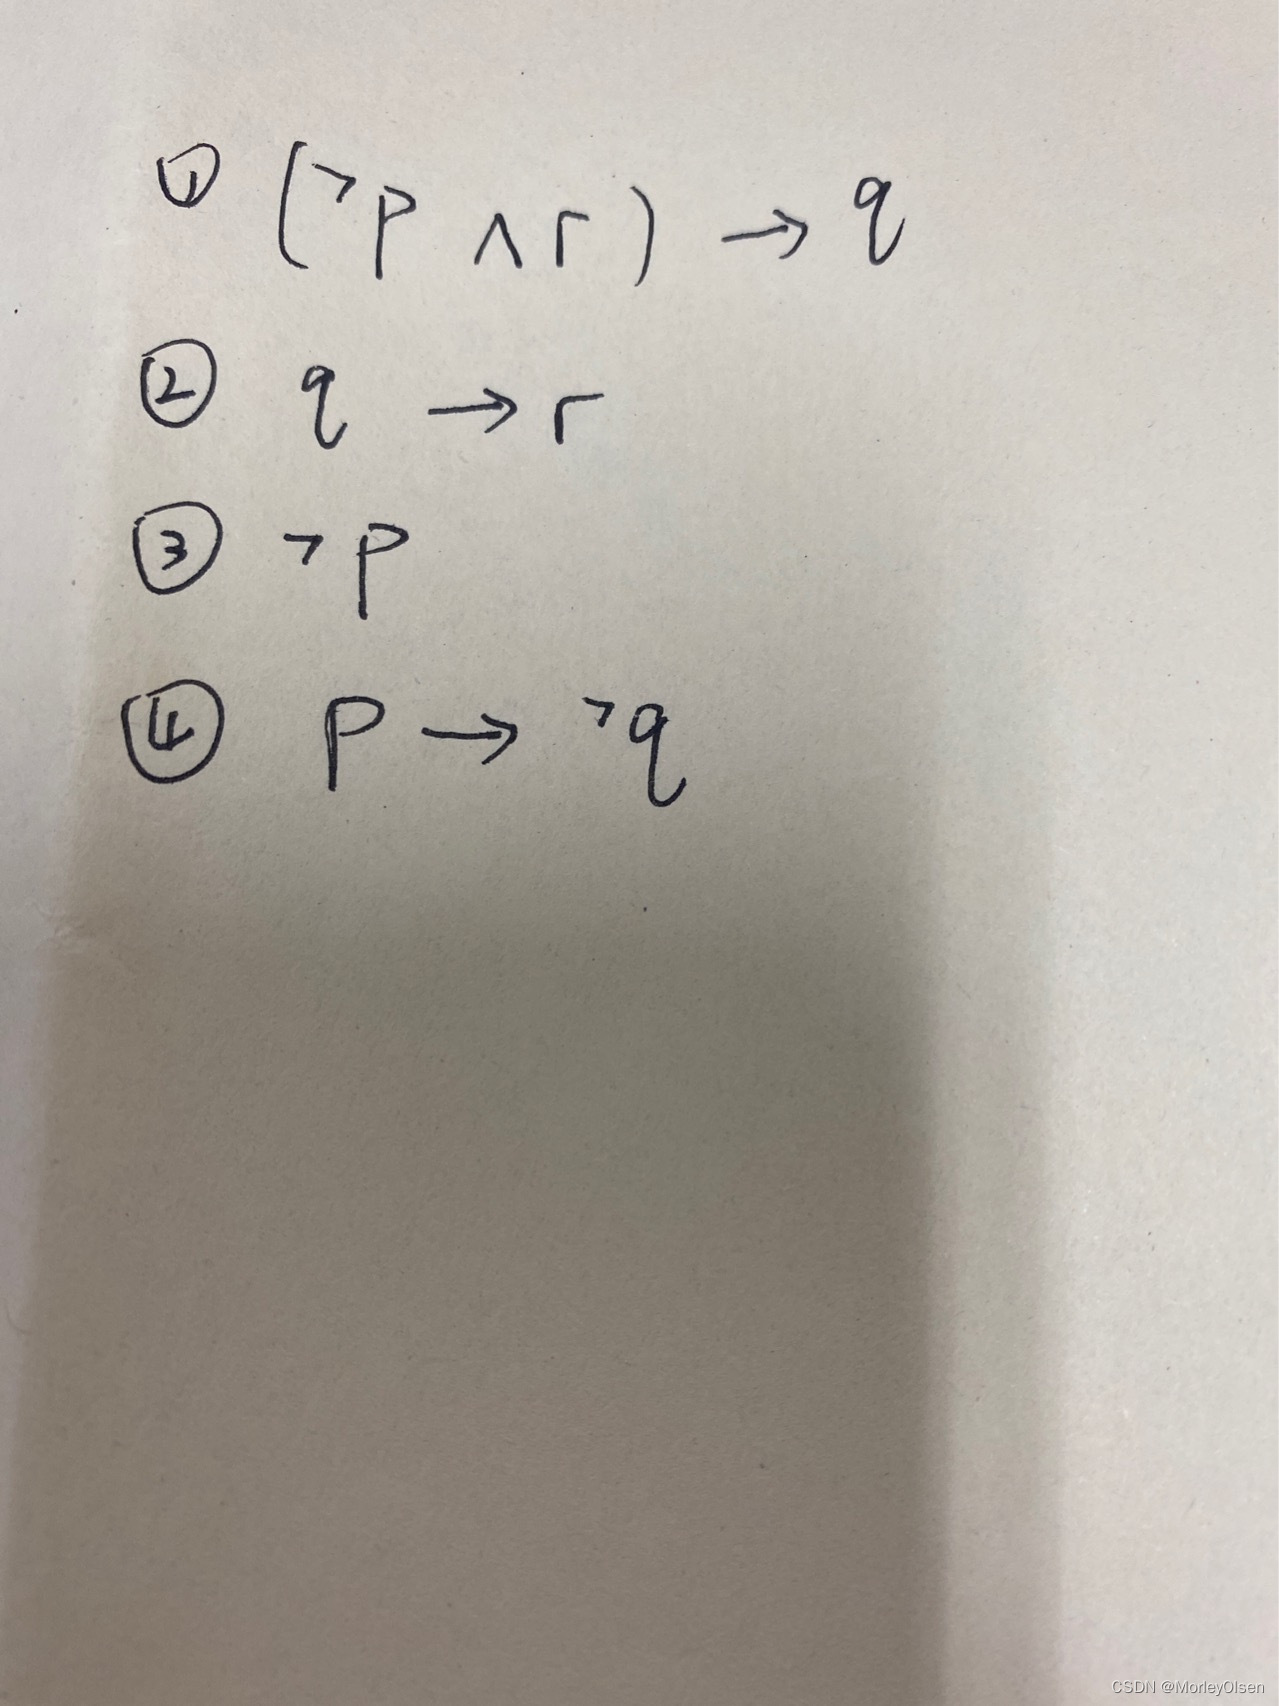 ① (¬p ∧ r) → q
② q → r
③ ¬p
④ p → ¬q
CSDN @MorleyOlsen